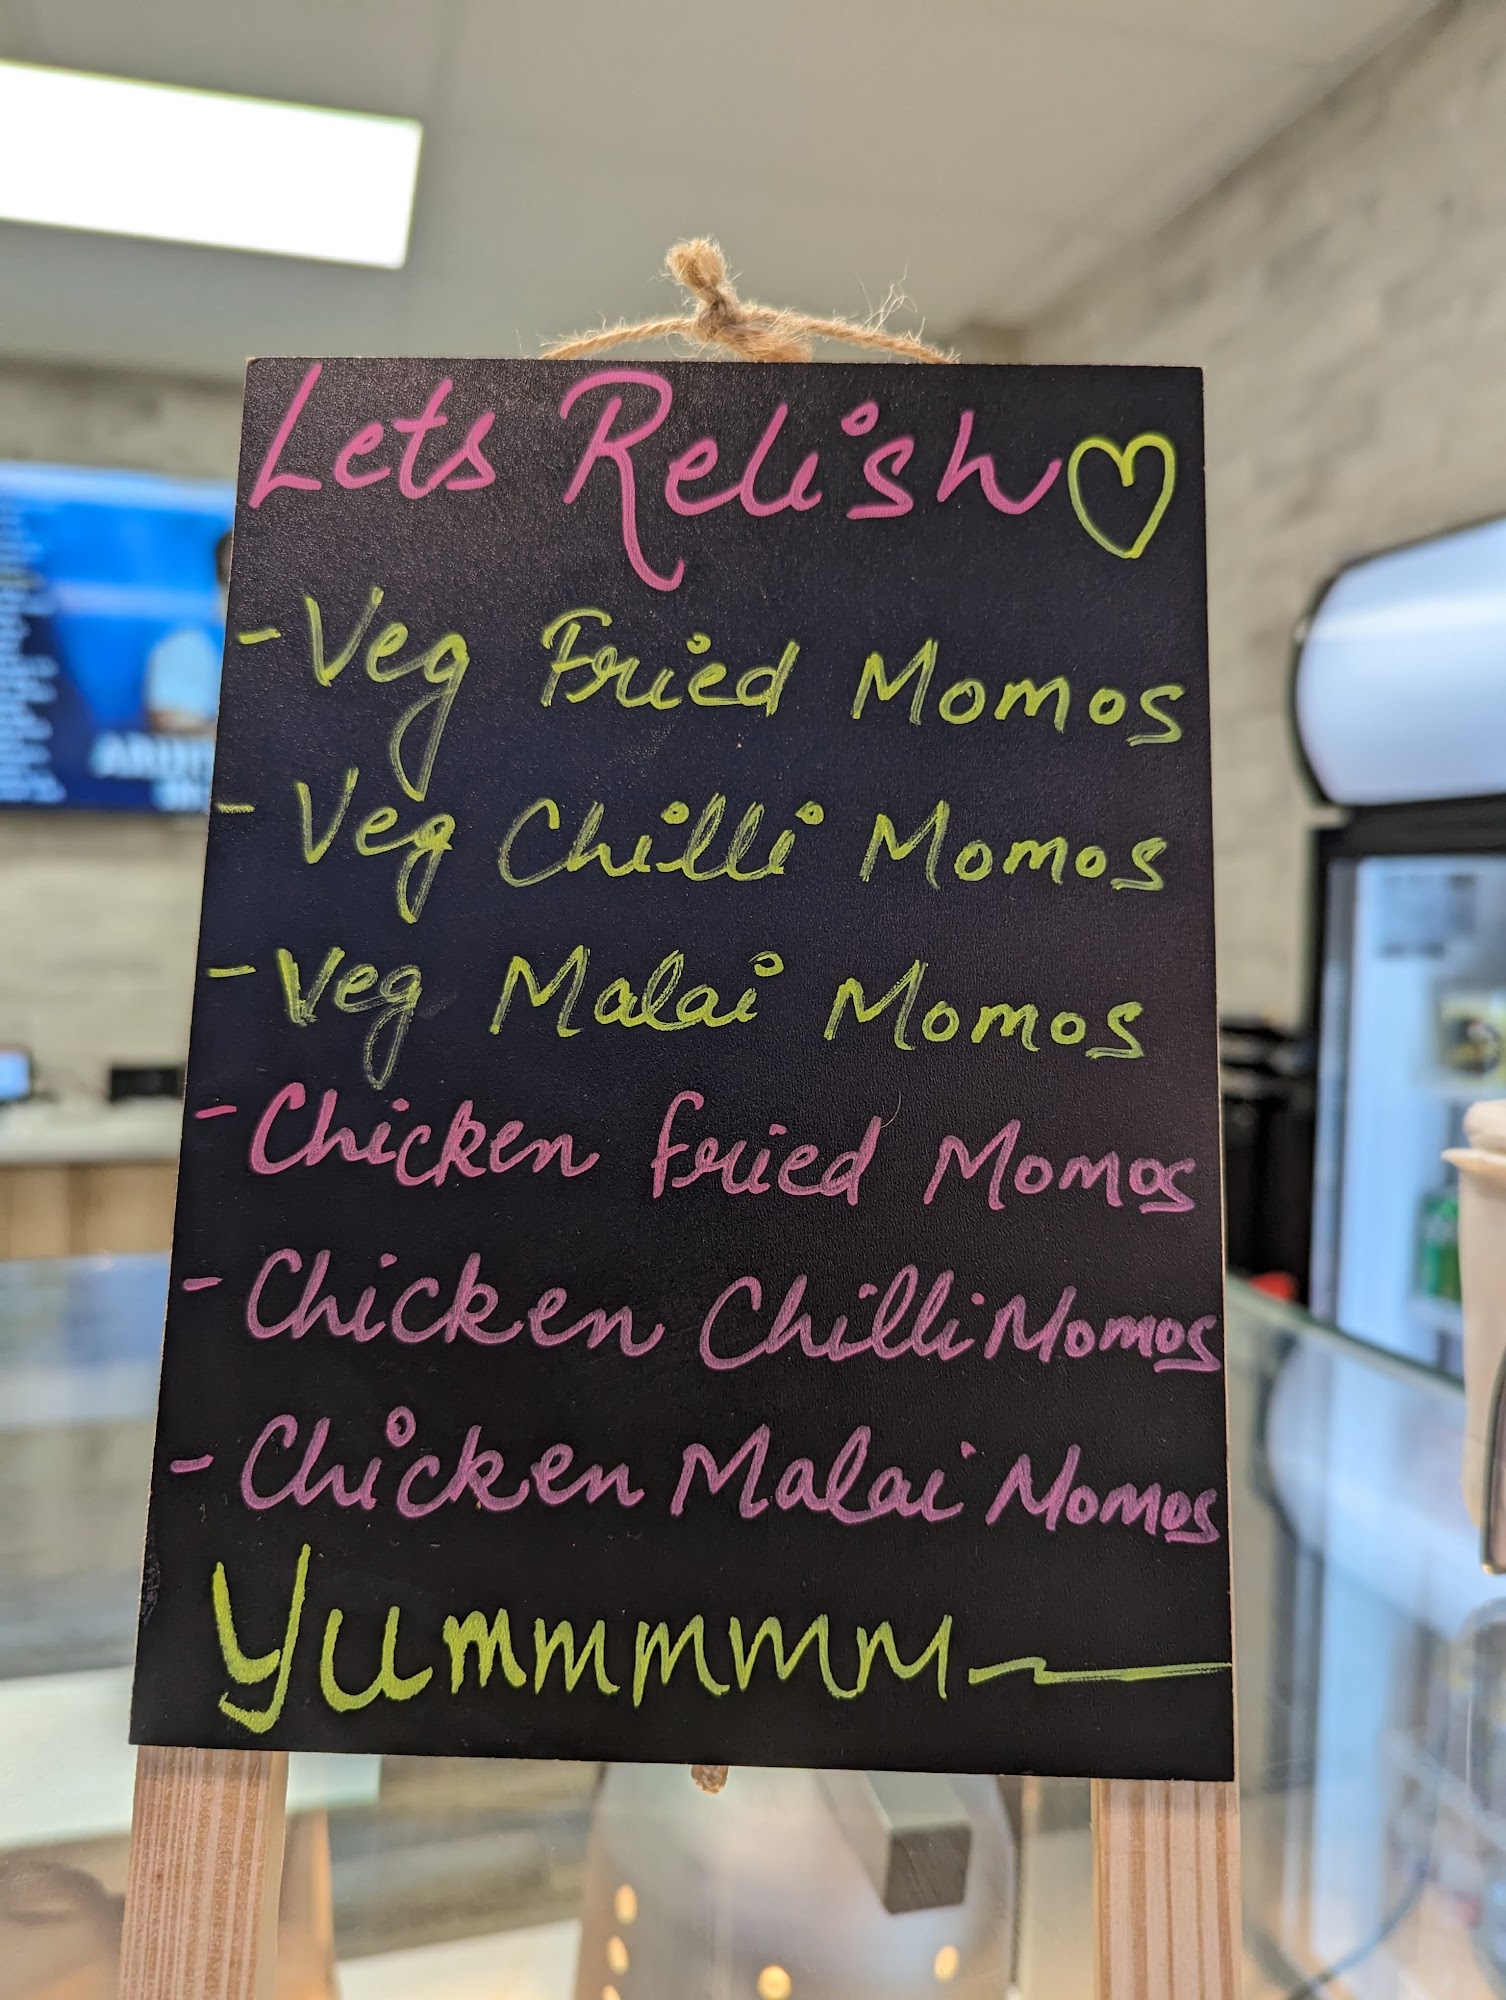 Lets Relish
- Veg Fried Momos
- Veg Chilli Momos
- Veg Malai Momos
- Chicken Fried Momos
- Chicken Chilli Momos
- Chicken Malai Momos
Yummmmm